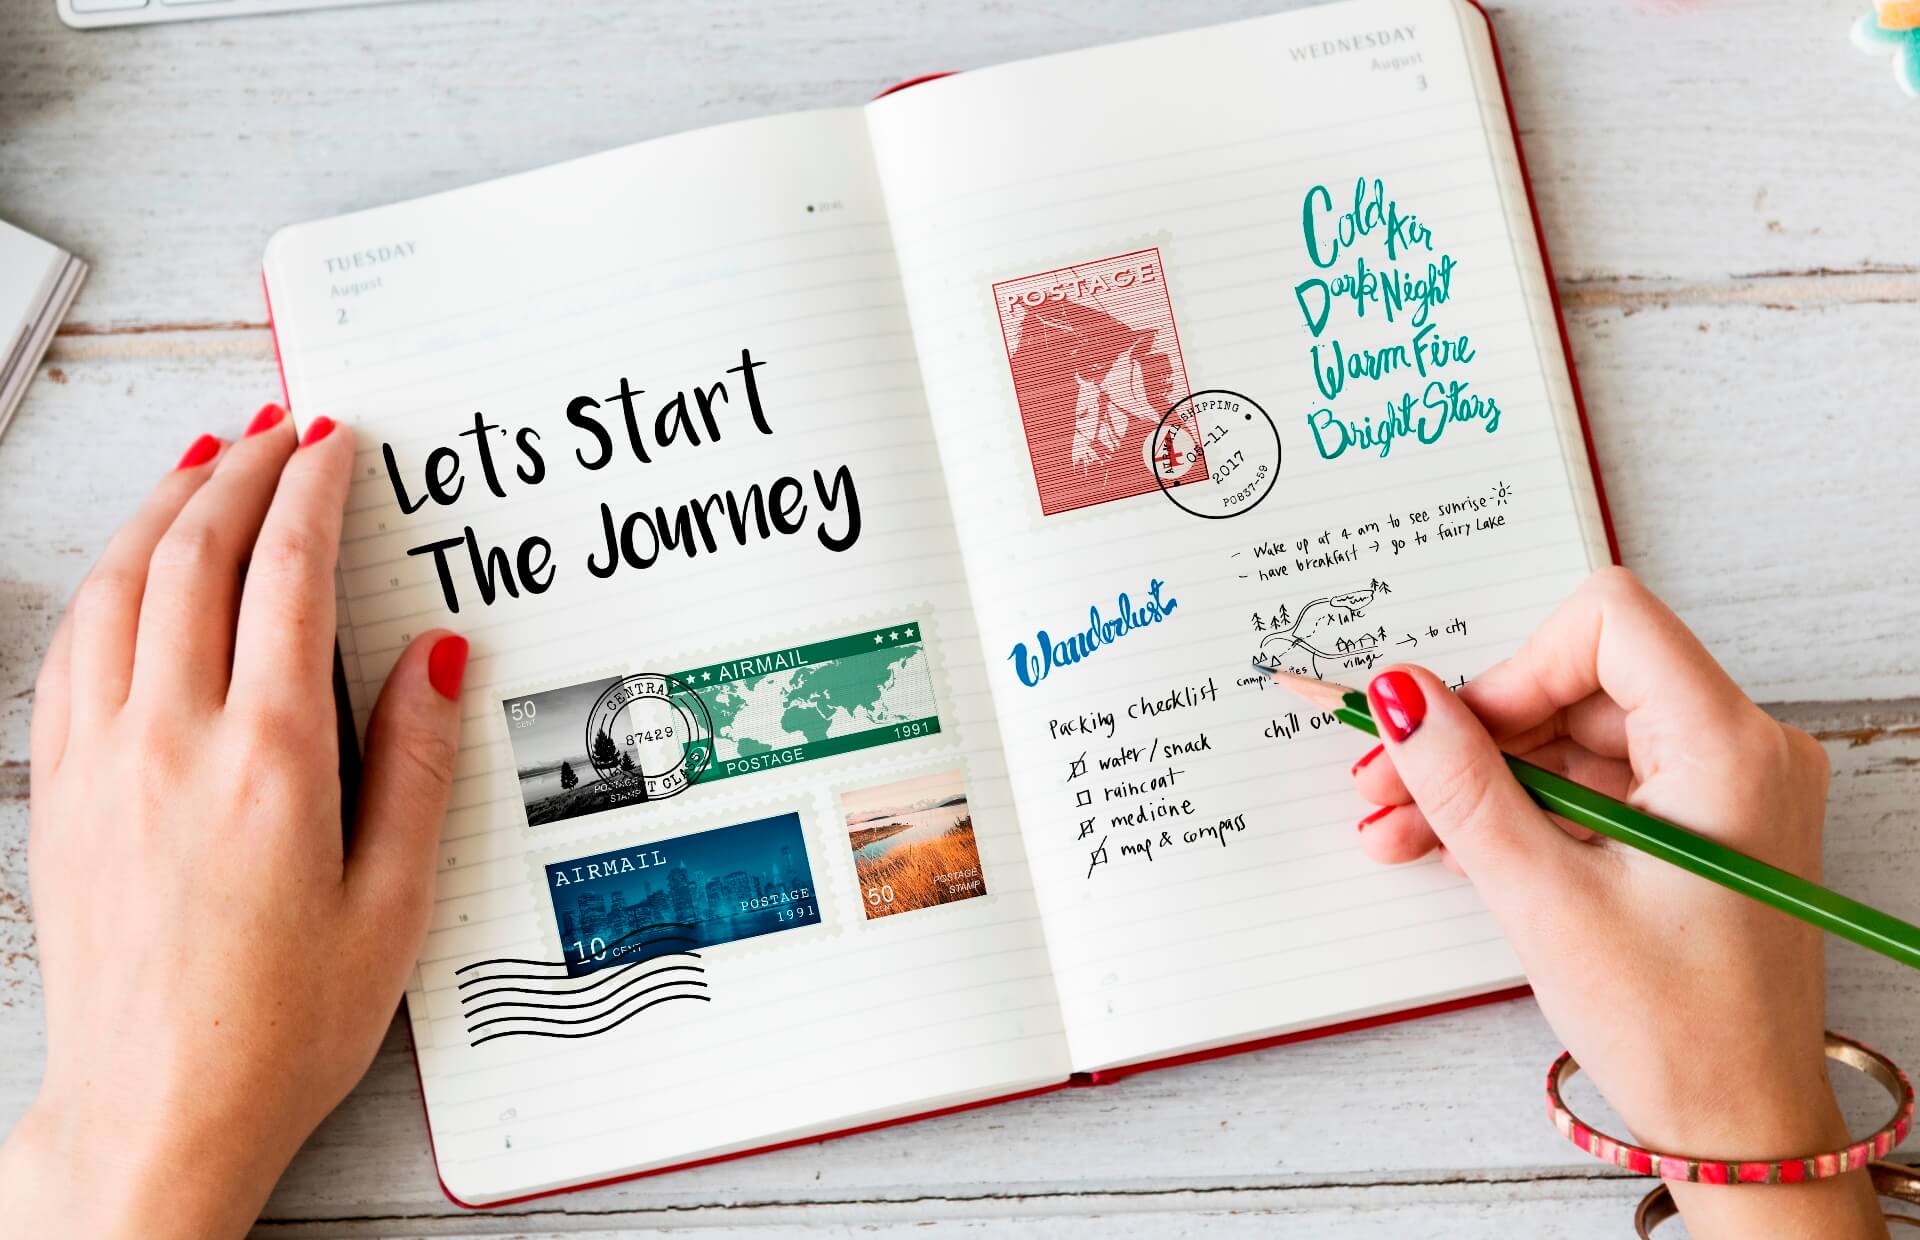 TUESDAY
August
2
20:45
Let's Start
The Journey
50
CENT
POSTAGE
STAMP
CENTRAL
87429
AIRMAIL
POSTAGE 1991
AIRMAIL
POSTAGE
1991
10 CENT
50
CENT
POSTAGE
STAMP
WEDNESDAY
August
3
POSTAGE
4
AIRMAIL SHIPPING
05-11
2017
PO837-59
Cold Air
Dark Night
Warm Fire
Bright Stars
- Wake up at 4 am to see sunrise
- have breakfast → go to fairy Lake
x lake
village
→ to city
chill
Wanderlust
Packing checklist
water/snack
raincoat
medicine
map & compass